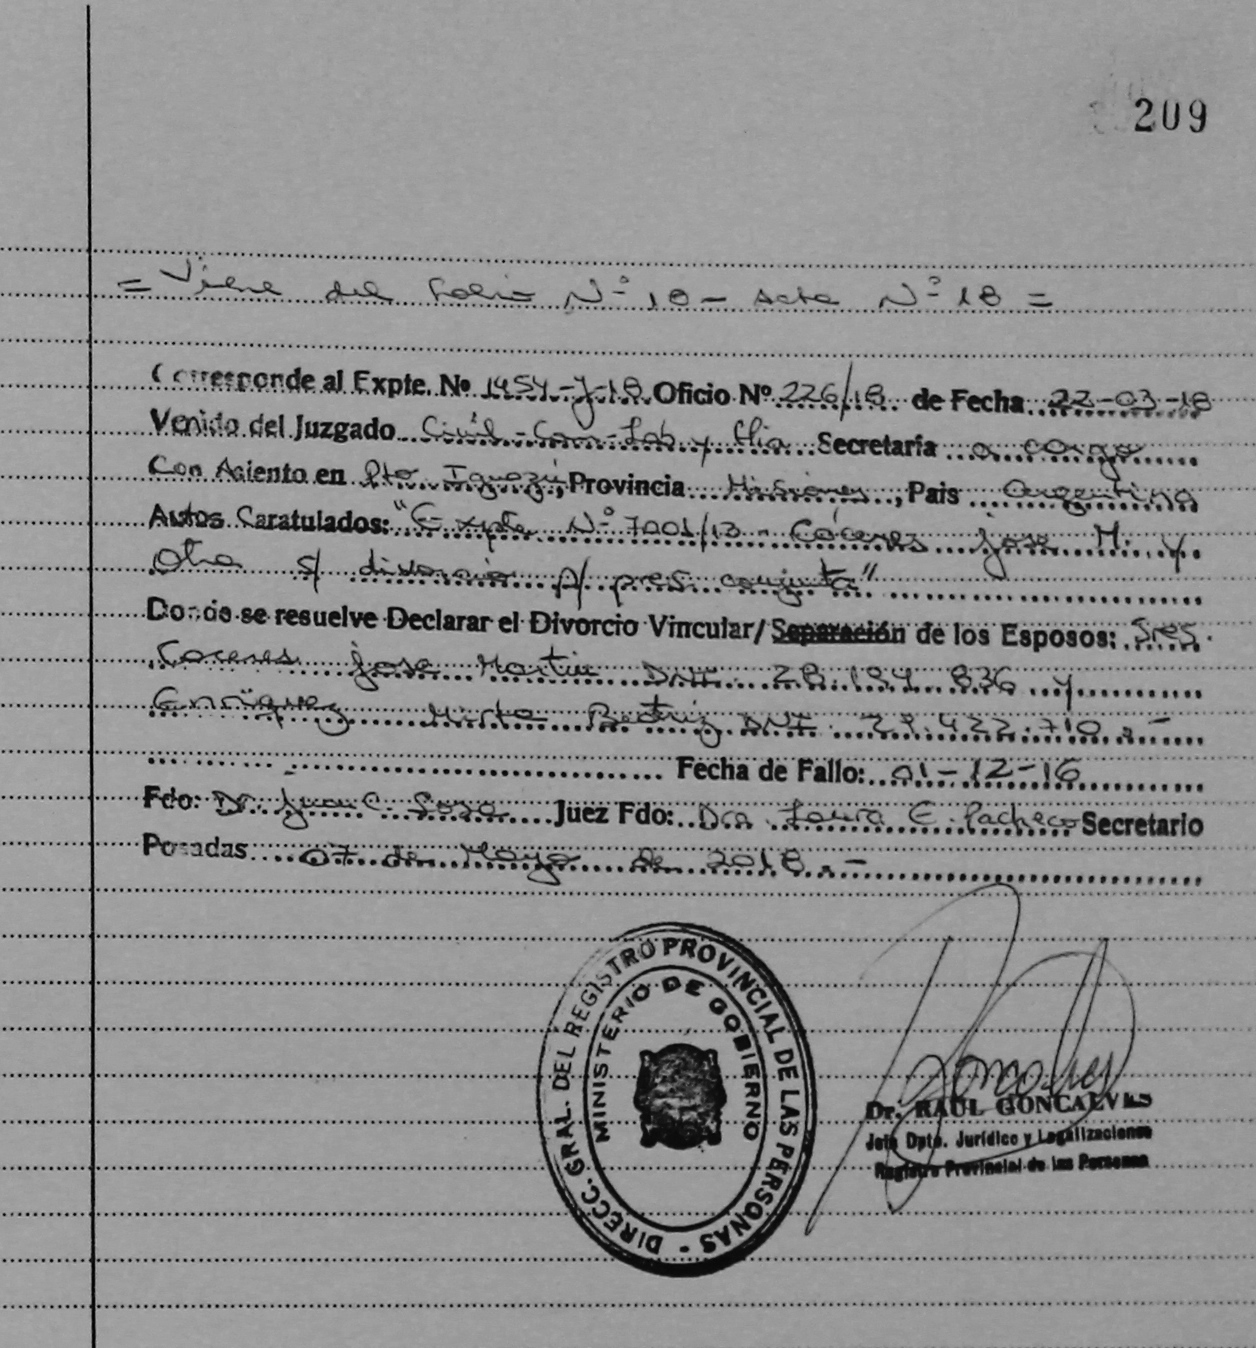 209
= Viene del folio Nº 18 - Acta Nº 18 =
Corresponde al Expte. Nº 1454-J-18 Oficio Nº 226/18 de Fecha 22-03-18
Venido del Juzgado Civil-Com-Lab y Flia Secretaría a cargo
Con Asiento en Pto. Iguazú, Provincia Misiones, Pais Argentina
Autos Caratulados: "Expte Nº 7001/13 - Cáceres Jose M. y
Otra s/ divorcio p/ pres. conjunta"
Donde se resuelve Declarar el Divorcio Vincular/ Separación de los Esposos: Sres.
Caceres Jose Martin DNI 28.194.836 y
Enriquez Mirta Beatriz DNI 29.422.710.-
Fecha de Fallo: 01-12-16
Fdo: Dr. Juan C. Sosa Juez Fdo: Dra. Laura E. Pacheco Secretario
Posadas 07 de Mayo de 2018.-
DIRECC. GRAL. DEL REGISTRO PROVINCIAL DE LAS PERSONAS -
MINISTERIO DE GOBIERNO
Dr. RAUL GONCALVES
Jefe Dpto. Jurídico y Legalizaciones
Registro Provincial de las Personas